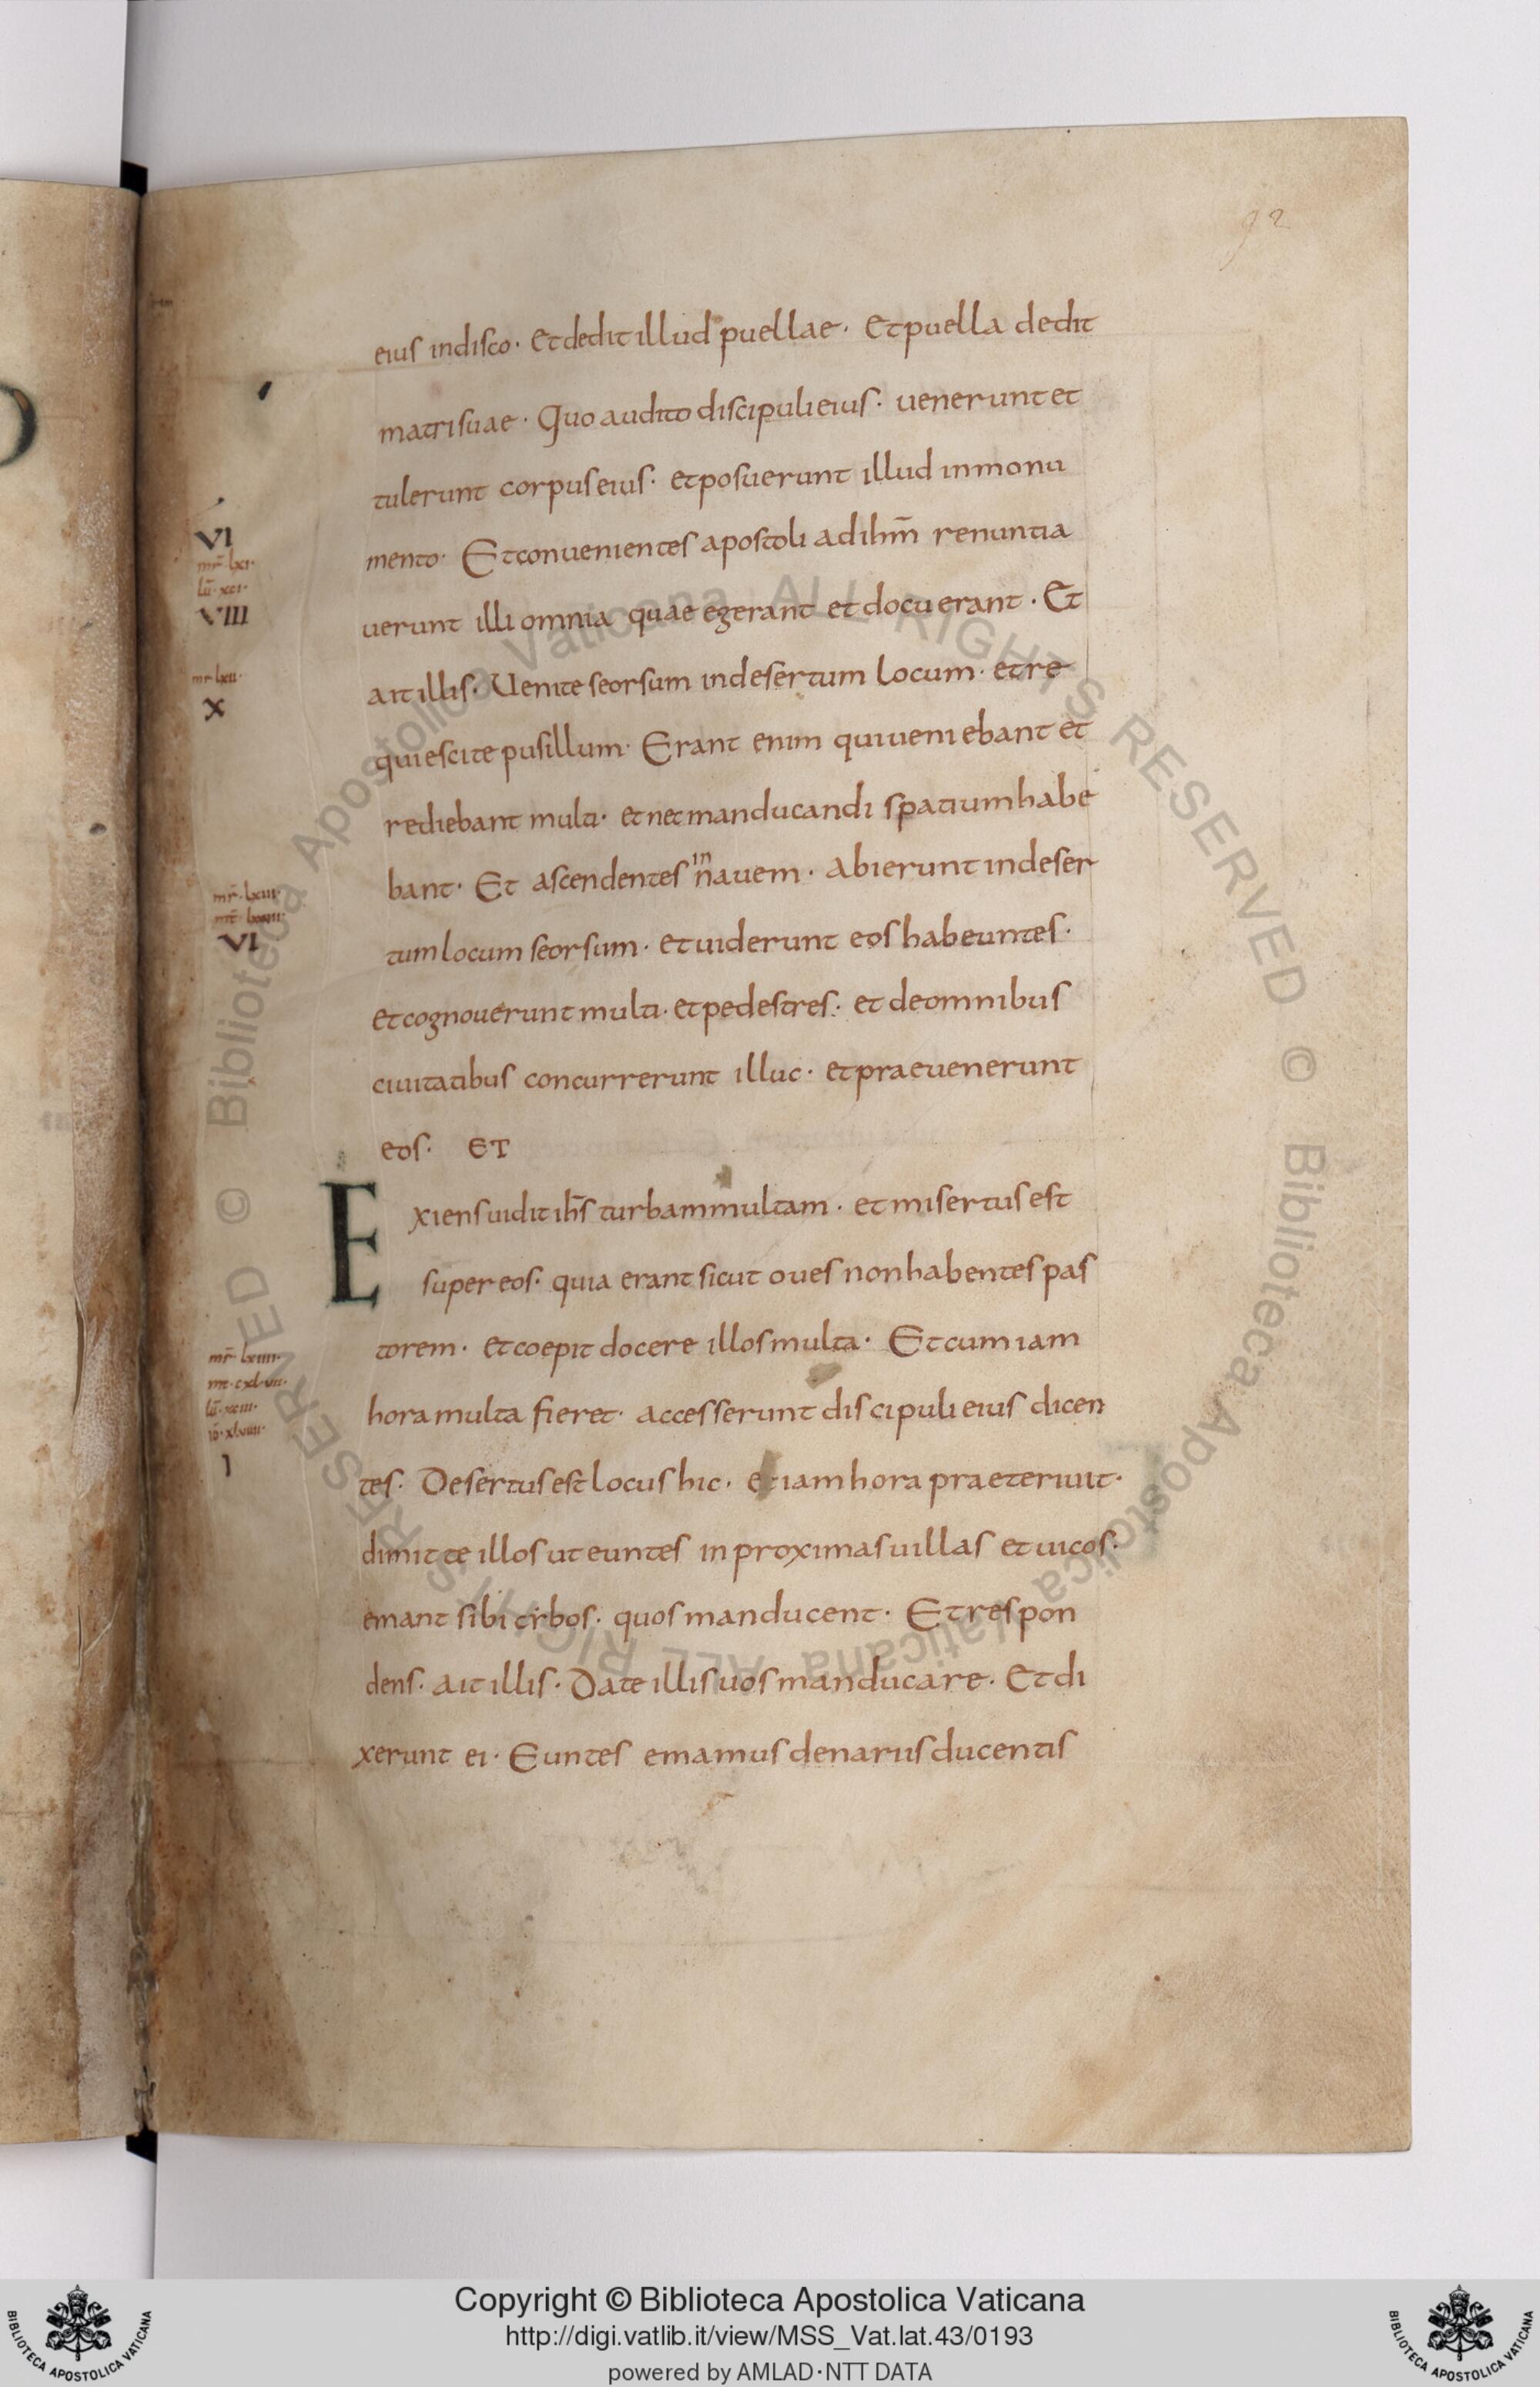 92
eius indisco· Et dedit illud puellae· Et puella dedit
matri suae· Quo audito discipuli eius· uenerunt et
tulerunt corpus eius· et posuerunt illud in monu
mento· Et conuenientes apostoli ad ihm̄ renuntia
uerunt illi omnia quae egerant et docuerant· Et
ait illis· Uenite seorsum in desertum locum· et re
quiescite pusillum· Erant enim qui ueniebant et
rediebant multi· et nec manducandi spatium habe
bant· Et ascendentes in nauem· abierunt in deser
tum locum seorsum· et uiderunt eos habeuntes·
et cognouerunt multi· et pedestres· et de omnibus
ciuitatibus concurrerunt illuc· et praeuenerunt
eos· ET
Exiens uidit ih̄s turbam multam· et misertus est
super eos· quia erant sicut oues non habentes pas
torem· et coepit docere illos multa· Et cum iam
hora multa fieret· accesserunt discipuli eius dicen
tes· Desertus est locus hic· et iam hora praeteriuit·
dimitte illos ut euntes in proximas uillas et uicos·
emant sibi cibos· quos manducent· Et respon
dens· ait illis· Date illis uos manducare· Et di
xerunt ei· Euntes emamus denariis ducentis
VI
mr̄· lxi·
lū· xci·
VIII
mr· lxii·
X
mr̄· lxiii·
VI
mr̄· lxiiii·
mt· cxlvii·
lū· xciii·
io· xlviiii·
I
© Biblioteca Apostolica Vaticana ALL RIGHTS RESERVED
© Biblioteca Apostolica Vaticana ALL RIGHTS RESERVED
Copyright © Biblioteca Apostolica Vaticana
http://digi.vatlib.it/view/MSS_Vat.lat.43/0193
powered by AMLAD·NTT DATA
BIBLIOTECA APOSTOLICA VATICANA
BIBLIOTECA APOSTOLICA VATICANA